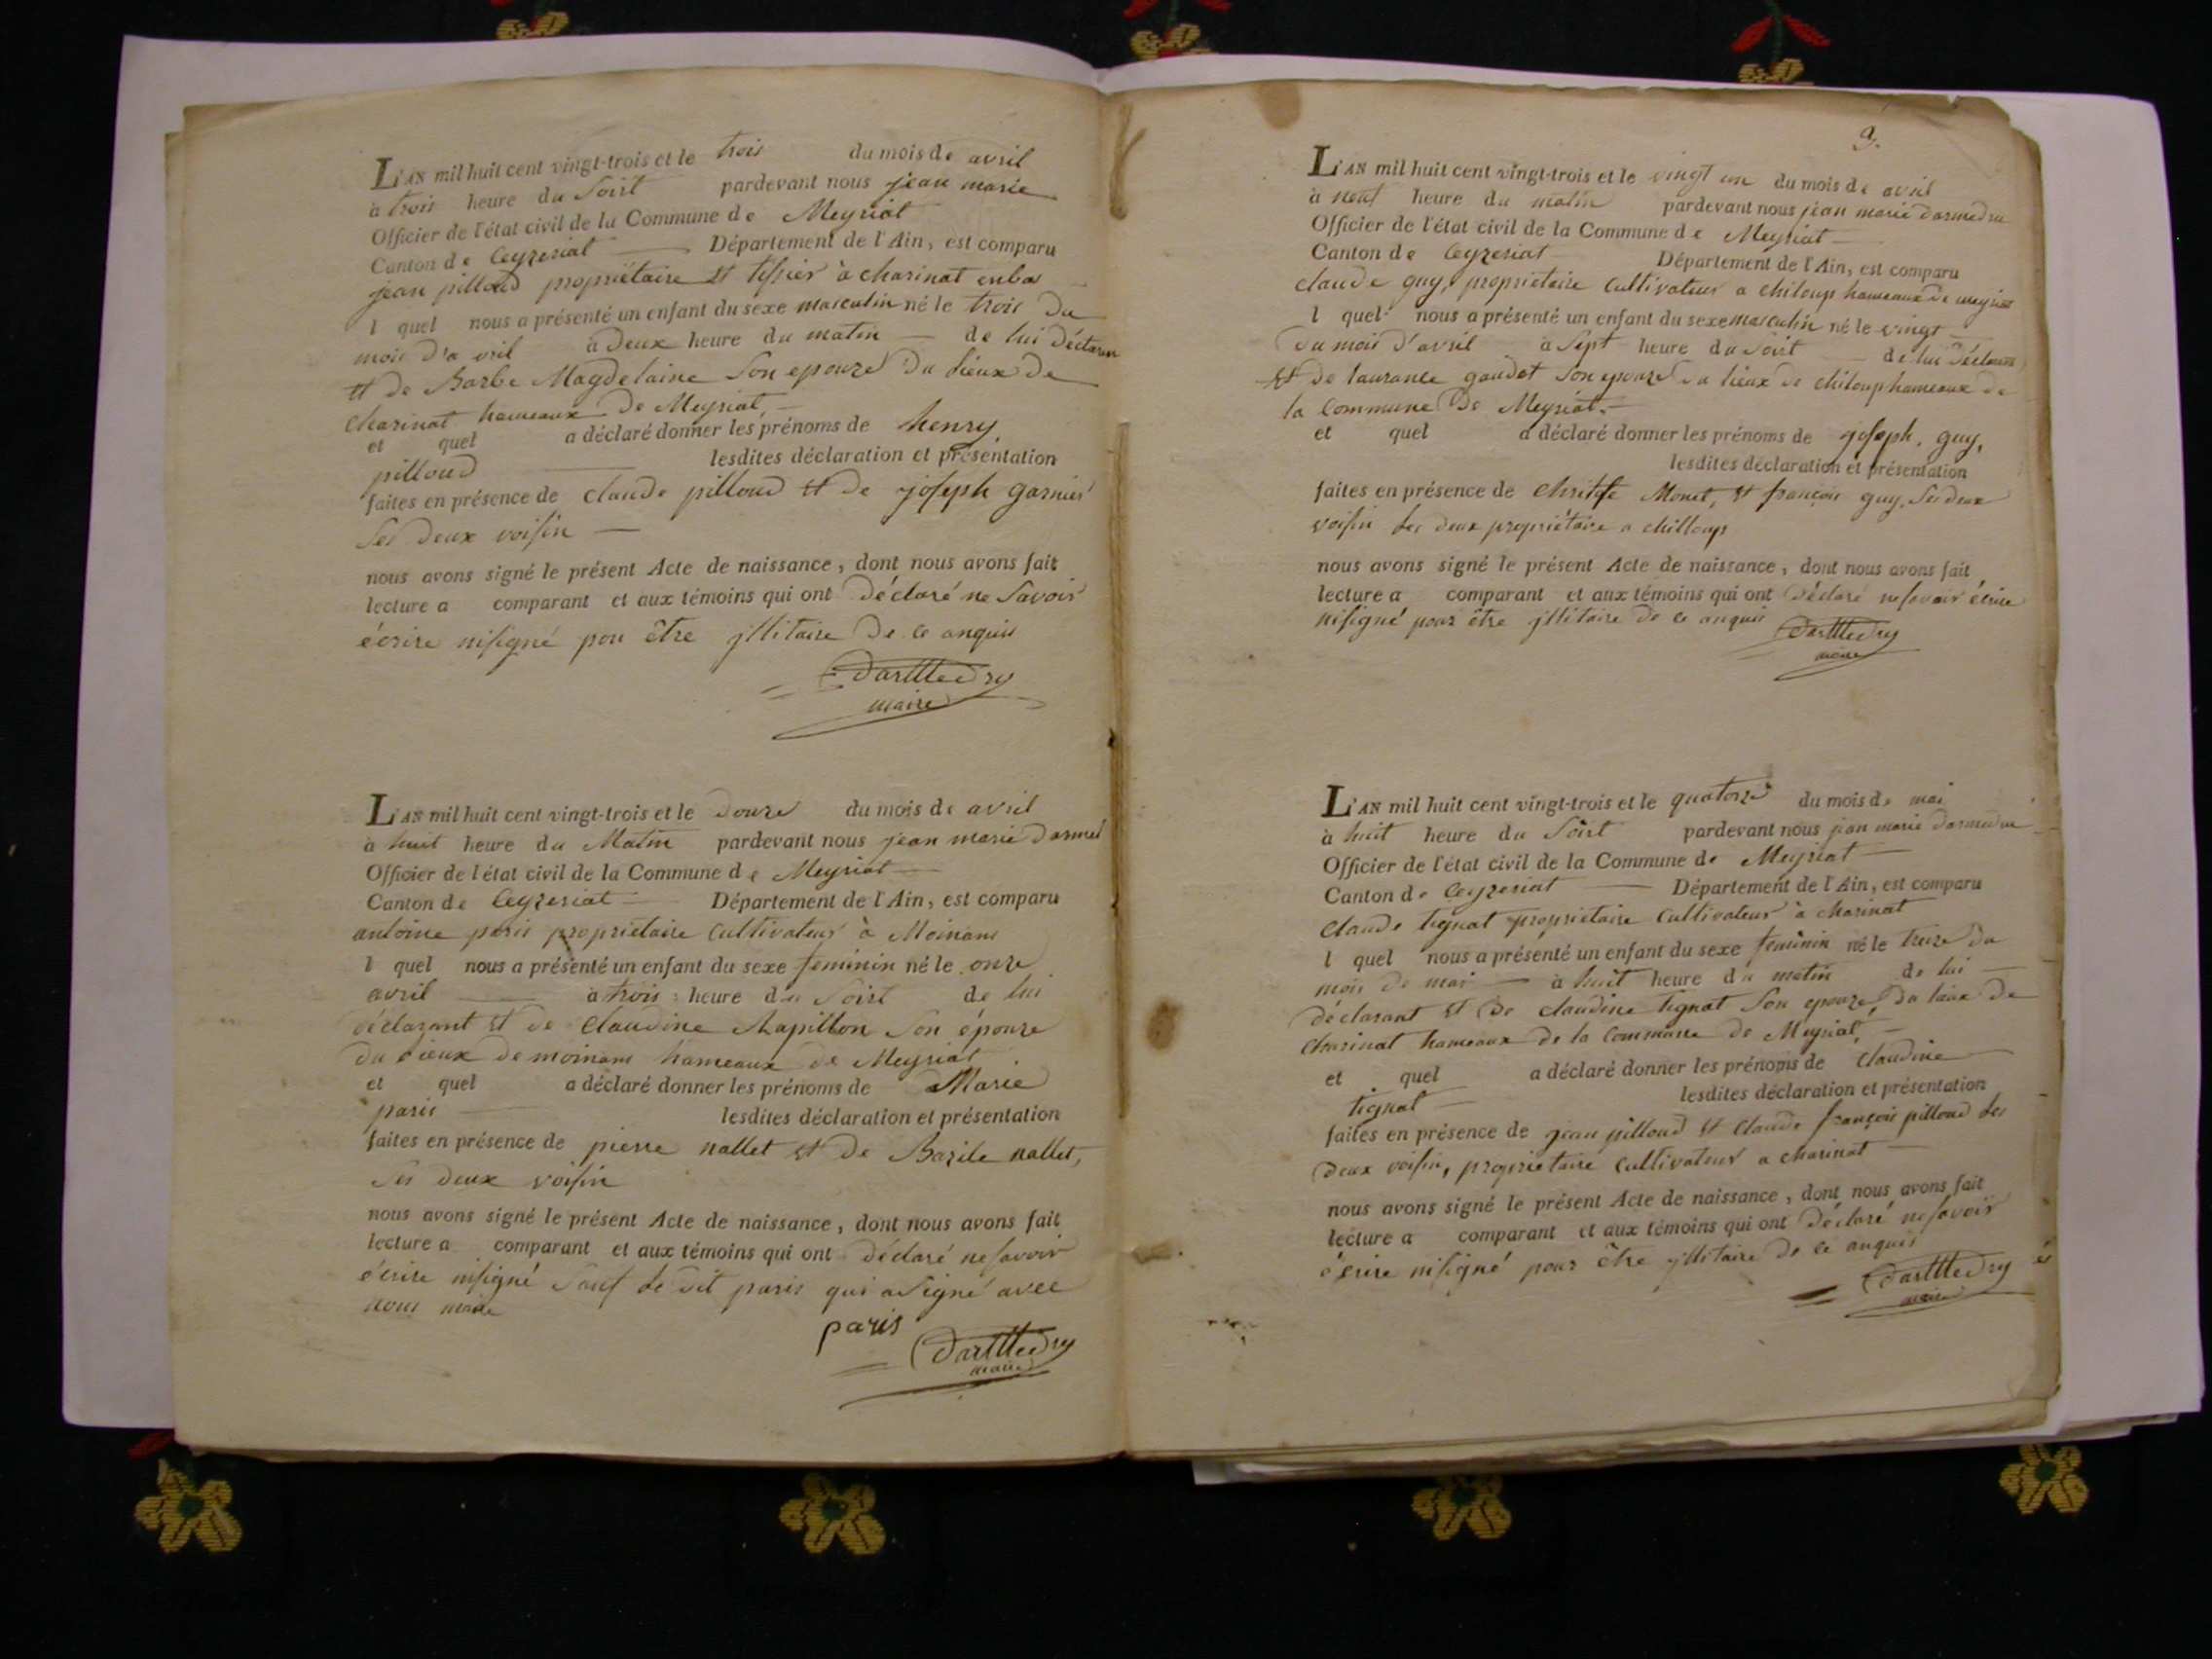 L'AN mil huit cent vingt-trois et le trois du mois de avril
à trois heure du Soirt pardevant nous jean marie
Officier de l'état civil de la Commune de Meyriat
Canton de Ceyzeriat Département de l'Ain, est comparu
jean pilloud propriétaire et tissier à charinat enba
l quel nous a présenté un enfant du sexe masculin né le trois du
mois d'avril à deux heure du matin de lui déclaran
et de Barbe Magdelaine Son epouze du lieux de
charinat hameaux de Meyriat,
et quel a déclaré donner les prénoms de henry
pilloud lesdites déclaration et présentation
faites en présence de claude pilloud et de joseph garnier
Ses deux voisin
nous avons signé le présent Acte de naissance, dont nous avons fait
lecture a comparant et aux témoins qui ont déclaré ne Savoir
écrire nisigné pou être jllitaire de ce anquis
Darmedry
maire
L'AN mil huit cent vingt-trois et le douze du mois de avril
à huit heure du Matin pardevant nous jean marie darmed
Officier de l'état civil de la Commune de Meyriat
Canton de Ceyzeriat Département de l'Ain, est comparu
antoine paris propriétaire Cultivateur à Moinans
l quel nous a présenté un enfant du sexe feminin né le onze
avril à trois heure du Soirt de lui
déclarant et de Claudine Chapillon Son épouze
du lieux de moinans hameaux de Meyriat
et quel a déclaré donner les prénoms de Marie
paris lesdites déclaration et présentation
faites en présence de pierre nallet et de Bazile nallet,
Ses deux voisin
nous avons signé le présent Acte de naissance, dont nous avons fait
lecture a comparant et aux témoins qui ont déclaré ne savoir
écrire nisigné Sauf le dit paris qui a Signé avec
nous maire
paris
Darmedry
maire
9.
L'AN mil huit cent vingt-trois et le vingt un du mois de avril
à neuf heure du matin pardevant nous jean marie darmedru
Officier de l'état civil de la Commune de Meyriat
Canton de Ceyzeriat Département de l'Ain, est comparu
claude guy, propriétaire Cultivateur a chiloup hameaux de meyriat
l quel nous a présenté un enfant du sexe masculin né le vingt
du mois d'avril à Sept heure du Soirt de lui déclarant
et de laurance gaudet Son epouze du lieux de chiloup hameaux de
la Commune de Meyriat.
et quel a déclaré donner les prénoms de joseph, guy,
lesdites déclaration et présentation
faites en présence de Monet, et françois guy, Ses deux
voisin Les deux propriétaire a chilloup
nous avons signé le présent Acte de naissance, dont nous avons fait
lecture a comparant et aux témoins qui ont déclaré ne savoir écrire
nisigné pour être jllitaire de ce anquis
Darmedry
maire
L'AN mil huit cent vingt-trois et le quatorze du mois de mai
à huit heure du Soirt pardevant nous jean marie darmedru
Officier de l'état civil de la Commune de Meyriat
Canton de Ceyzeriat Département de l'Ain, est comparu
Claude tignat propriétaire Cultivateur à charinat
l quel nous a présenté un enfant du sexe feminin né le treize du
mois de mai à huit heure du matin de lui
déclarant et de claudine tignat Son epouze, du lieux de
charinat hameaux de la Commune de Meyriat,
et quel a déclaré donner les prénoms de Claudine
tignat lesdites déclaration et présentation
faites en présence de jean pilloud et Claude françois pilloud Les
deux voisin, propriétaire cultivateur a charinat
nous avons signé le présent Acte de naissance, dont nous avons fait
lecture a comparant et aux témoins qui ont déclaré ne savoir
écrire nisigné pour être jllitaire de ce anquis
Darmedry
maire